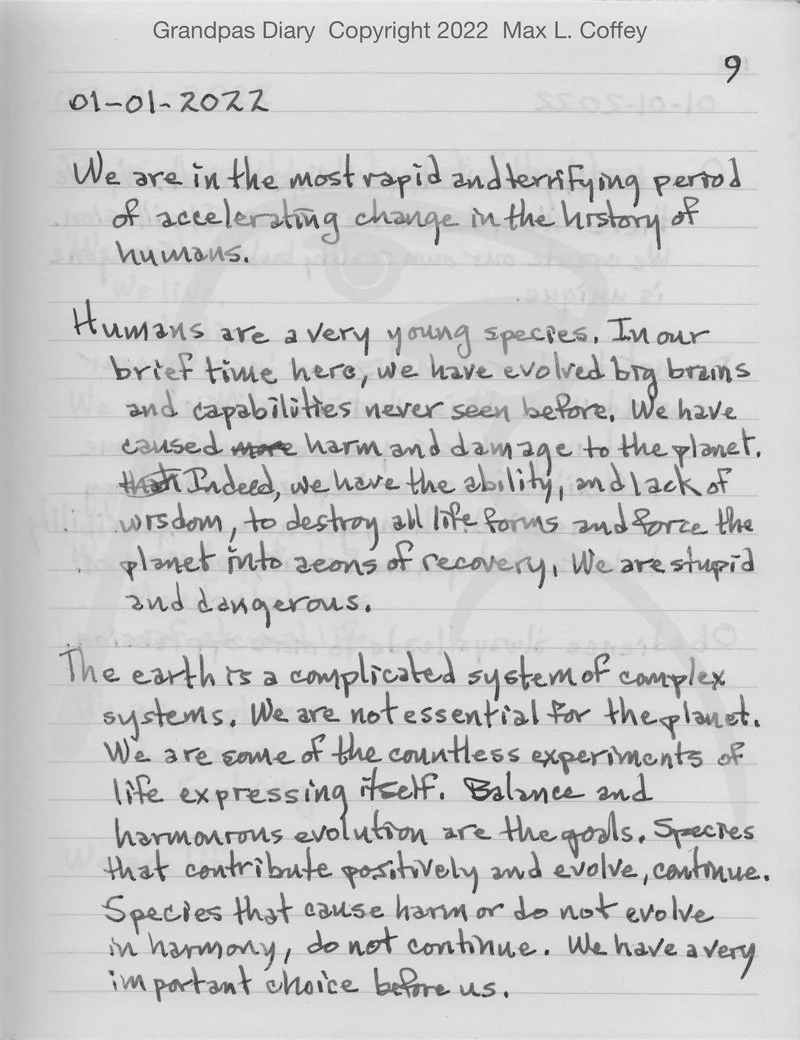 Grandpas Diary Copyright 2022 Max L. Coffey
9
01-01-2022
We are in the most rapid and terrifying period
of accelerating change in the history of
humans.
Humans are a very young species. In our
brief time here, we have evolved big brains
and capabilities never seen before. We have
caused more harm and damage to the planet.
than Indeed, we have the ability, and lack of
wisdom, to destroy all life forms and force the
planet into aeons of recovery. We are stupid
and dangerous.
The earth is a complicated system of complex
systems. We are not essential for the planet.
We are some of the countless experiments of
life expressing itself. Balance and
harmonious evolution are the goals. Species
that contribute positively and evolve, continue.
Species that cause harm or do not evolve
in harmony, do not continue. We have a very
important choice before us.